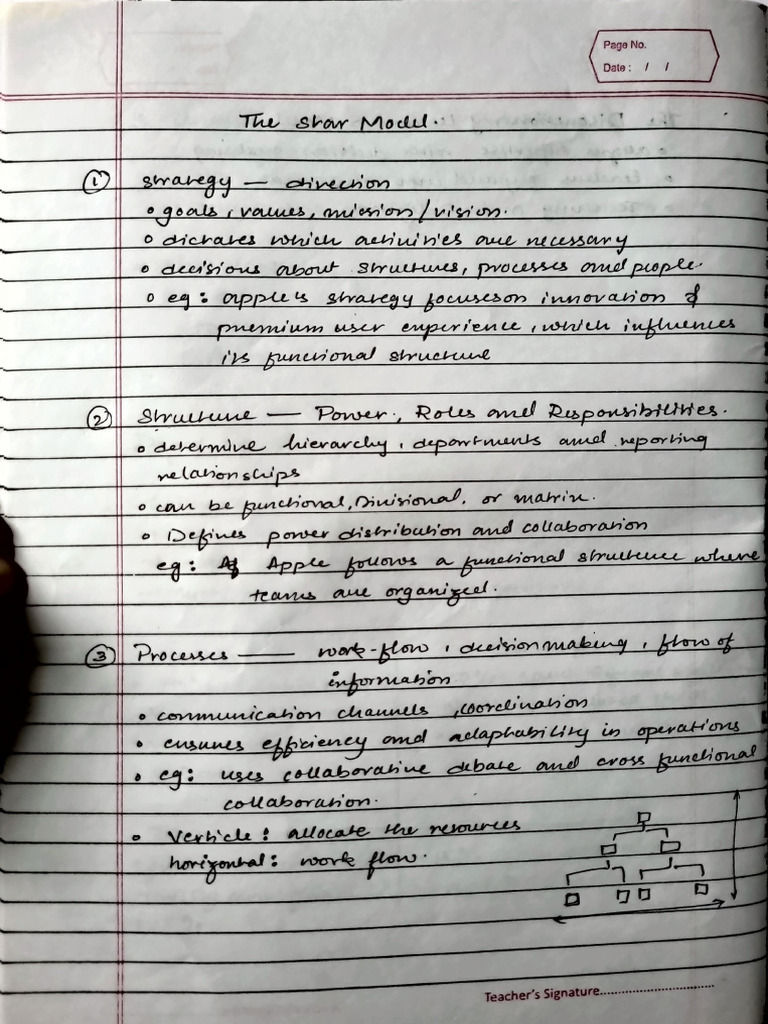 Page No.
Date : / /
The Star Model.
① strategy — direction
• goals, values, mission / vision.
• dictates which activities are necessary
• decisions about structures, processes and people.
• eg: apple's strategy focuses on innovation &
premium user experience, which influences
its functional structure
② Structure — Power, Roles and Responsibilities.
• determine hierarchy, departments and reporting
relationships
• can be functional, Divisional, or matrix.
• Defines power distribution and collaboration
eg: Apple follows a functional structure where
teams are organized.
③ Processes — work-flow, decision making, flow of
information
• communication channels, coordination
• ensures efficiency and adaptability in operations
• eg: uses collaborative debate and cross functional
collaboration.
• Verticle: allocate the resources
horizontal: work flow.
Teacher's Signature